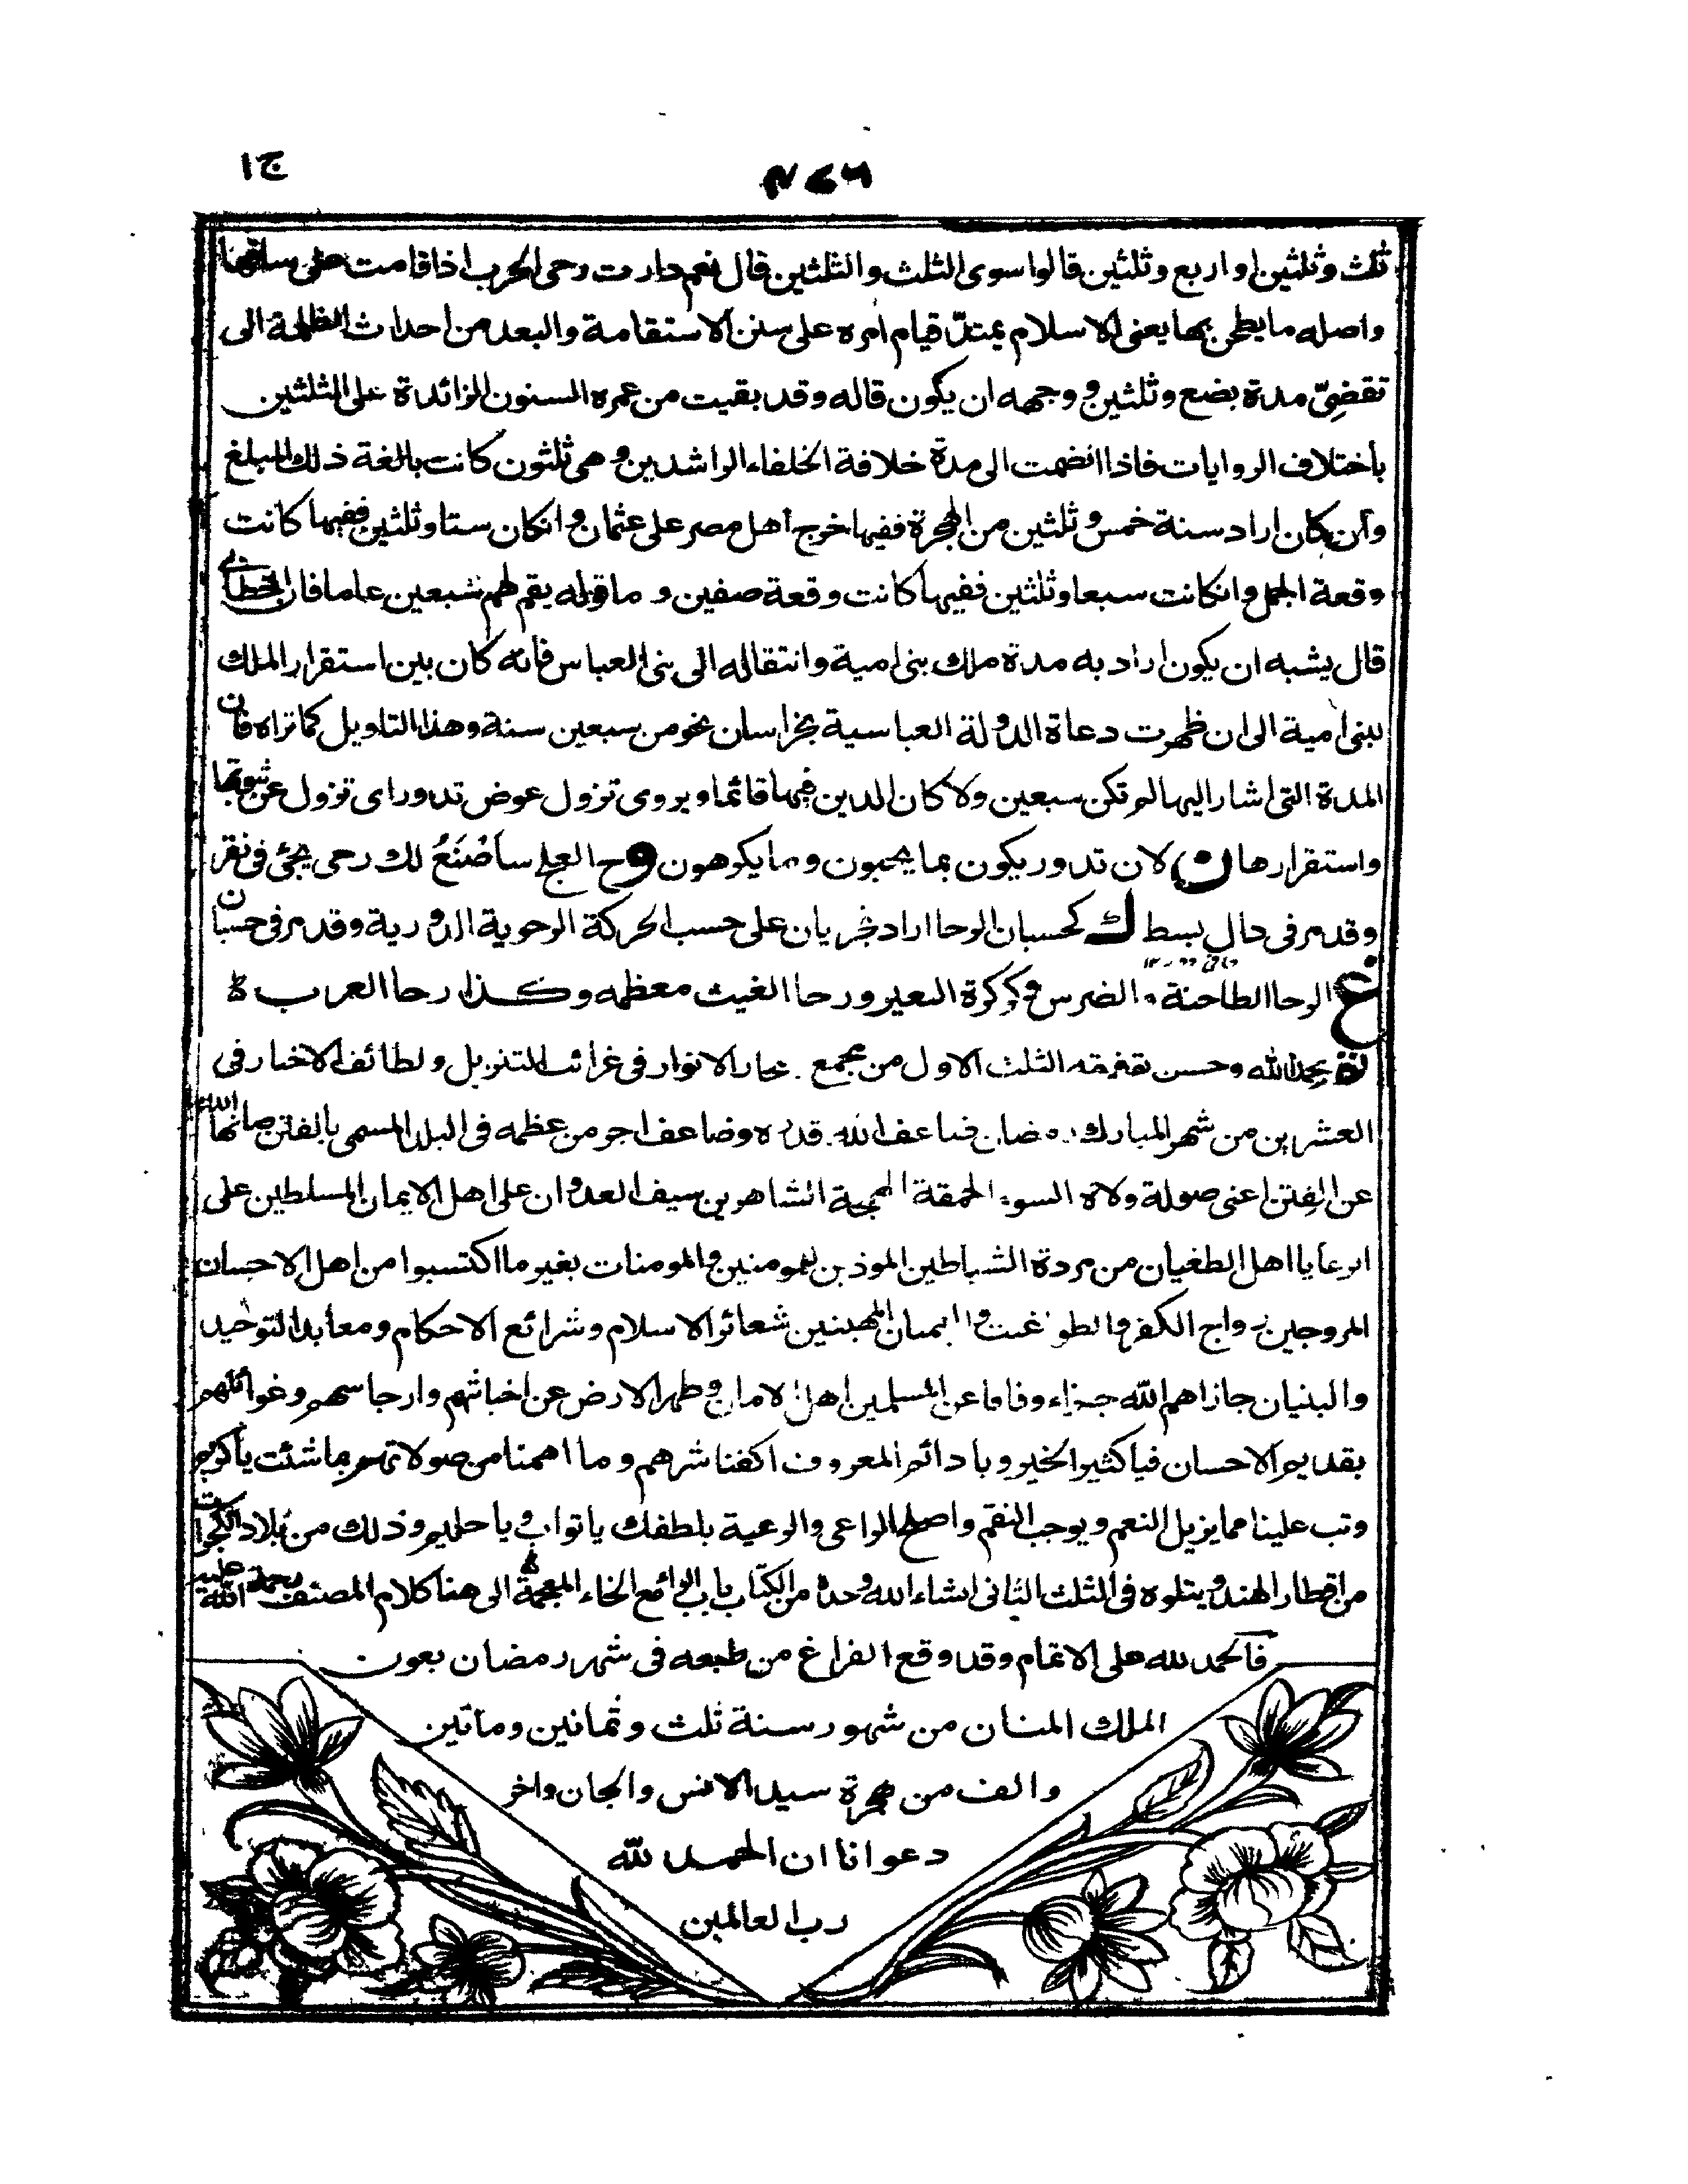 ج ١
٤٧٦
ثلث وثلثين او اربع وثلثين قالوا سوى الثلث والثلثين قال نعم دارت رحى الحرب اذا قامت على ساقها
واصله ما يطحن بها يعنى الاسلام يمتدّ قيام امره على سنن الاستقامة والبعد من احداث الظلمة الى
تقضىّ مدة بضع وثلثين و وجهه ان يكون قاله وقد بقيت من عمره السنون الزائدة على الثلثين
باختلاف الروايات فاذا انضمت الى مدة خلافة الخلفاء الراشدين وهى ثلثون كانت بالغة ذلك المبلغ
وان كان اراد سنة خمس وثلثين من الهجرة ففيها خرج اهل مصر على عثمان و انكان ستا وثلثين ففيها كانت
وقعة الجمل وانكانت سبعا وثلثين ففيها كانت وقعة صفين و ما قوله يقم لهم سبعين عاما فان الخطابى
قال يشبه ان يكون اراد به مدة ملك بنى امية وانتقاله الى بنى العباس فانه كان بين استقرار الملك
لبنى امية الى ان ظهرت دعاة الدولة العباسية بخراسان نحو من سبعين سنة وهذا التاويل كما تراه فان
المدة التى اشار اليها لم تكن سبعين ولا كان الدين فيها قائما و يروى تزول عوض تدور اى تزول عن ثبوتها
واستقرارها ن لان تدور يكون بما يحبون وبما يكرهون وح العجلى سأصْنَعُ لك رحى يجئ فى نقر
وقد مر فى حال بسط ك كحسبان الرحا اراد يجريان على حسب الحركة الرحوية الدورية وقد مر فى حسبان
غ الرحا الطاحنة والضرس وكركرة البعير ورحا الغيث معظمه وكذا رحا العرب
تم بحمد الله وحسن توفيقه الثلث الاول من مجمع بحار الانوار فى غرائب التنزيل ولطائف الاخبار فى
العشرين من شهر المبارك رمضان ضاعف الله قدره وضاعف اجر من عظمه فى البلد المسمى بالفتن صانها الله
عن الفتن اعنى صولة ولاة السوء الحمقة الهمجية الشاهرين سيف العدوان على اهل الايمان المسلطين على
الرعايا اهل الطغيان من مردة الشياطين الموذين للمومنين والمومنات بغير ما اكتسبوا من اهل الاحسان
المروجين رواج الكفر والطواغيت و الايمان المهينين شعائر الاسلام وشرائع الاحكام ومعابد التوحيد
والبنيان جازاهم الله جزاء وفاقا عن المسلمين اهل الامان وطهر الارض عن اخباثهم وارجاسهم وغوائلهم
بقديم الاحسان فيا كثير الخير ويا دائم المعروف اكفنا شرهم وما اهمنا من صولاتهم بما شئت يا كريم
وتب علينا مما يزيل النعم ويوجب النقم واصلح الراعى والرعية بلطفك يا تواب و يا حليم وذلك من بلاد الكجرات
من اقطار الهند ويتلوه فى الثلث الثانى انشاء الله وحده من الكتاب باب الراء مع الخاء المعجمة الى هنا كلام المصنف رحمة الله عليه
فالحمد لله على الاتمام وقد وقع الفراغ من طبعه فى شهر رمضان بعون
الملك المنان من شهور سنة ثلث وثمانين وماتين
والف من هجرة سيد الانس والجان واخر
دعوانا ان الحمد لله
رب العالمين